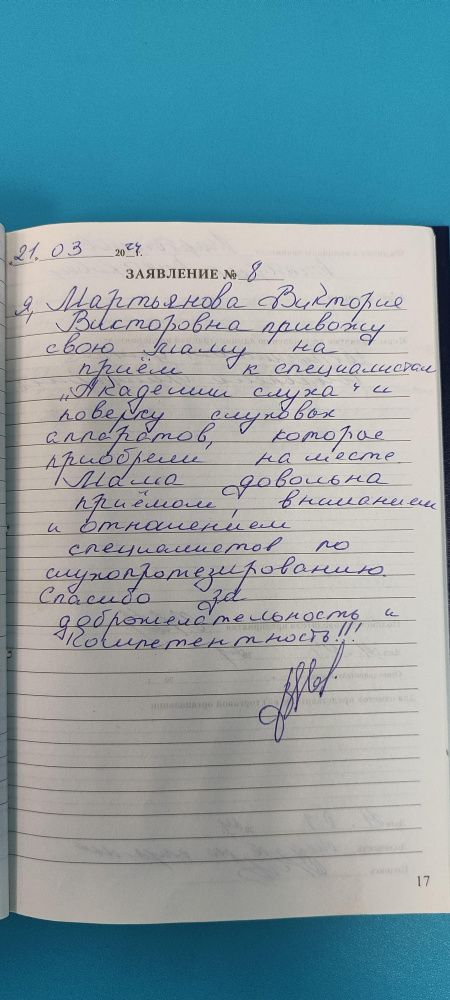 21. 03 2024г.
ЗАЯВЛЕНИЕ № 8
Я, Мартьянова Виктория
Викторовна привожу
свою маму на
приём к специалистам
„Академии слуха" и
поверку слуховых
аппаратов, которые
приобрели на месте.
Мама довольна
приёмом, вниманием
и отношением
специалистов по
слухопротезированию.
Спасибо за
доброжелательность и
компетентность!!!
17